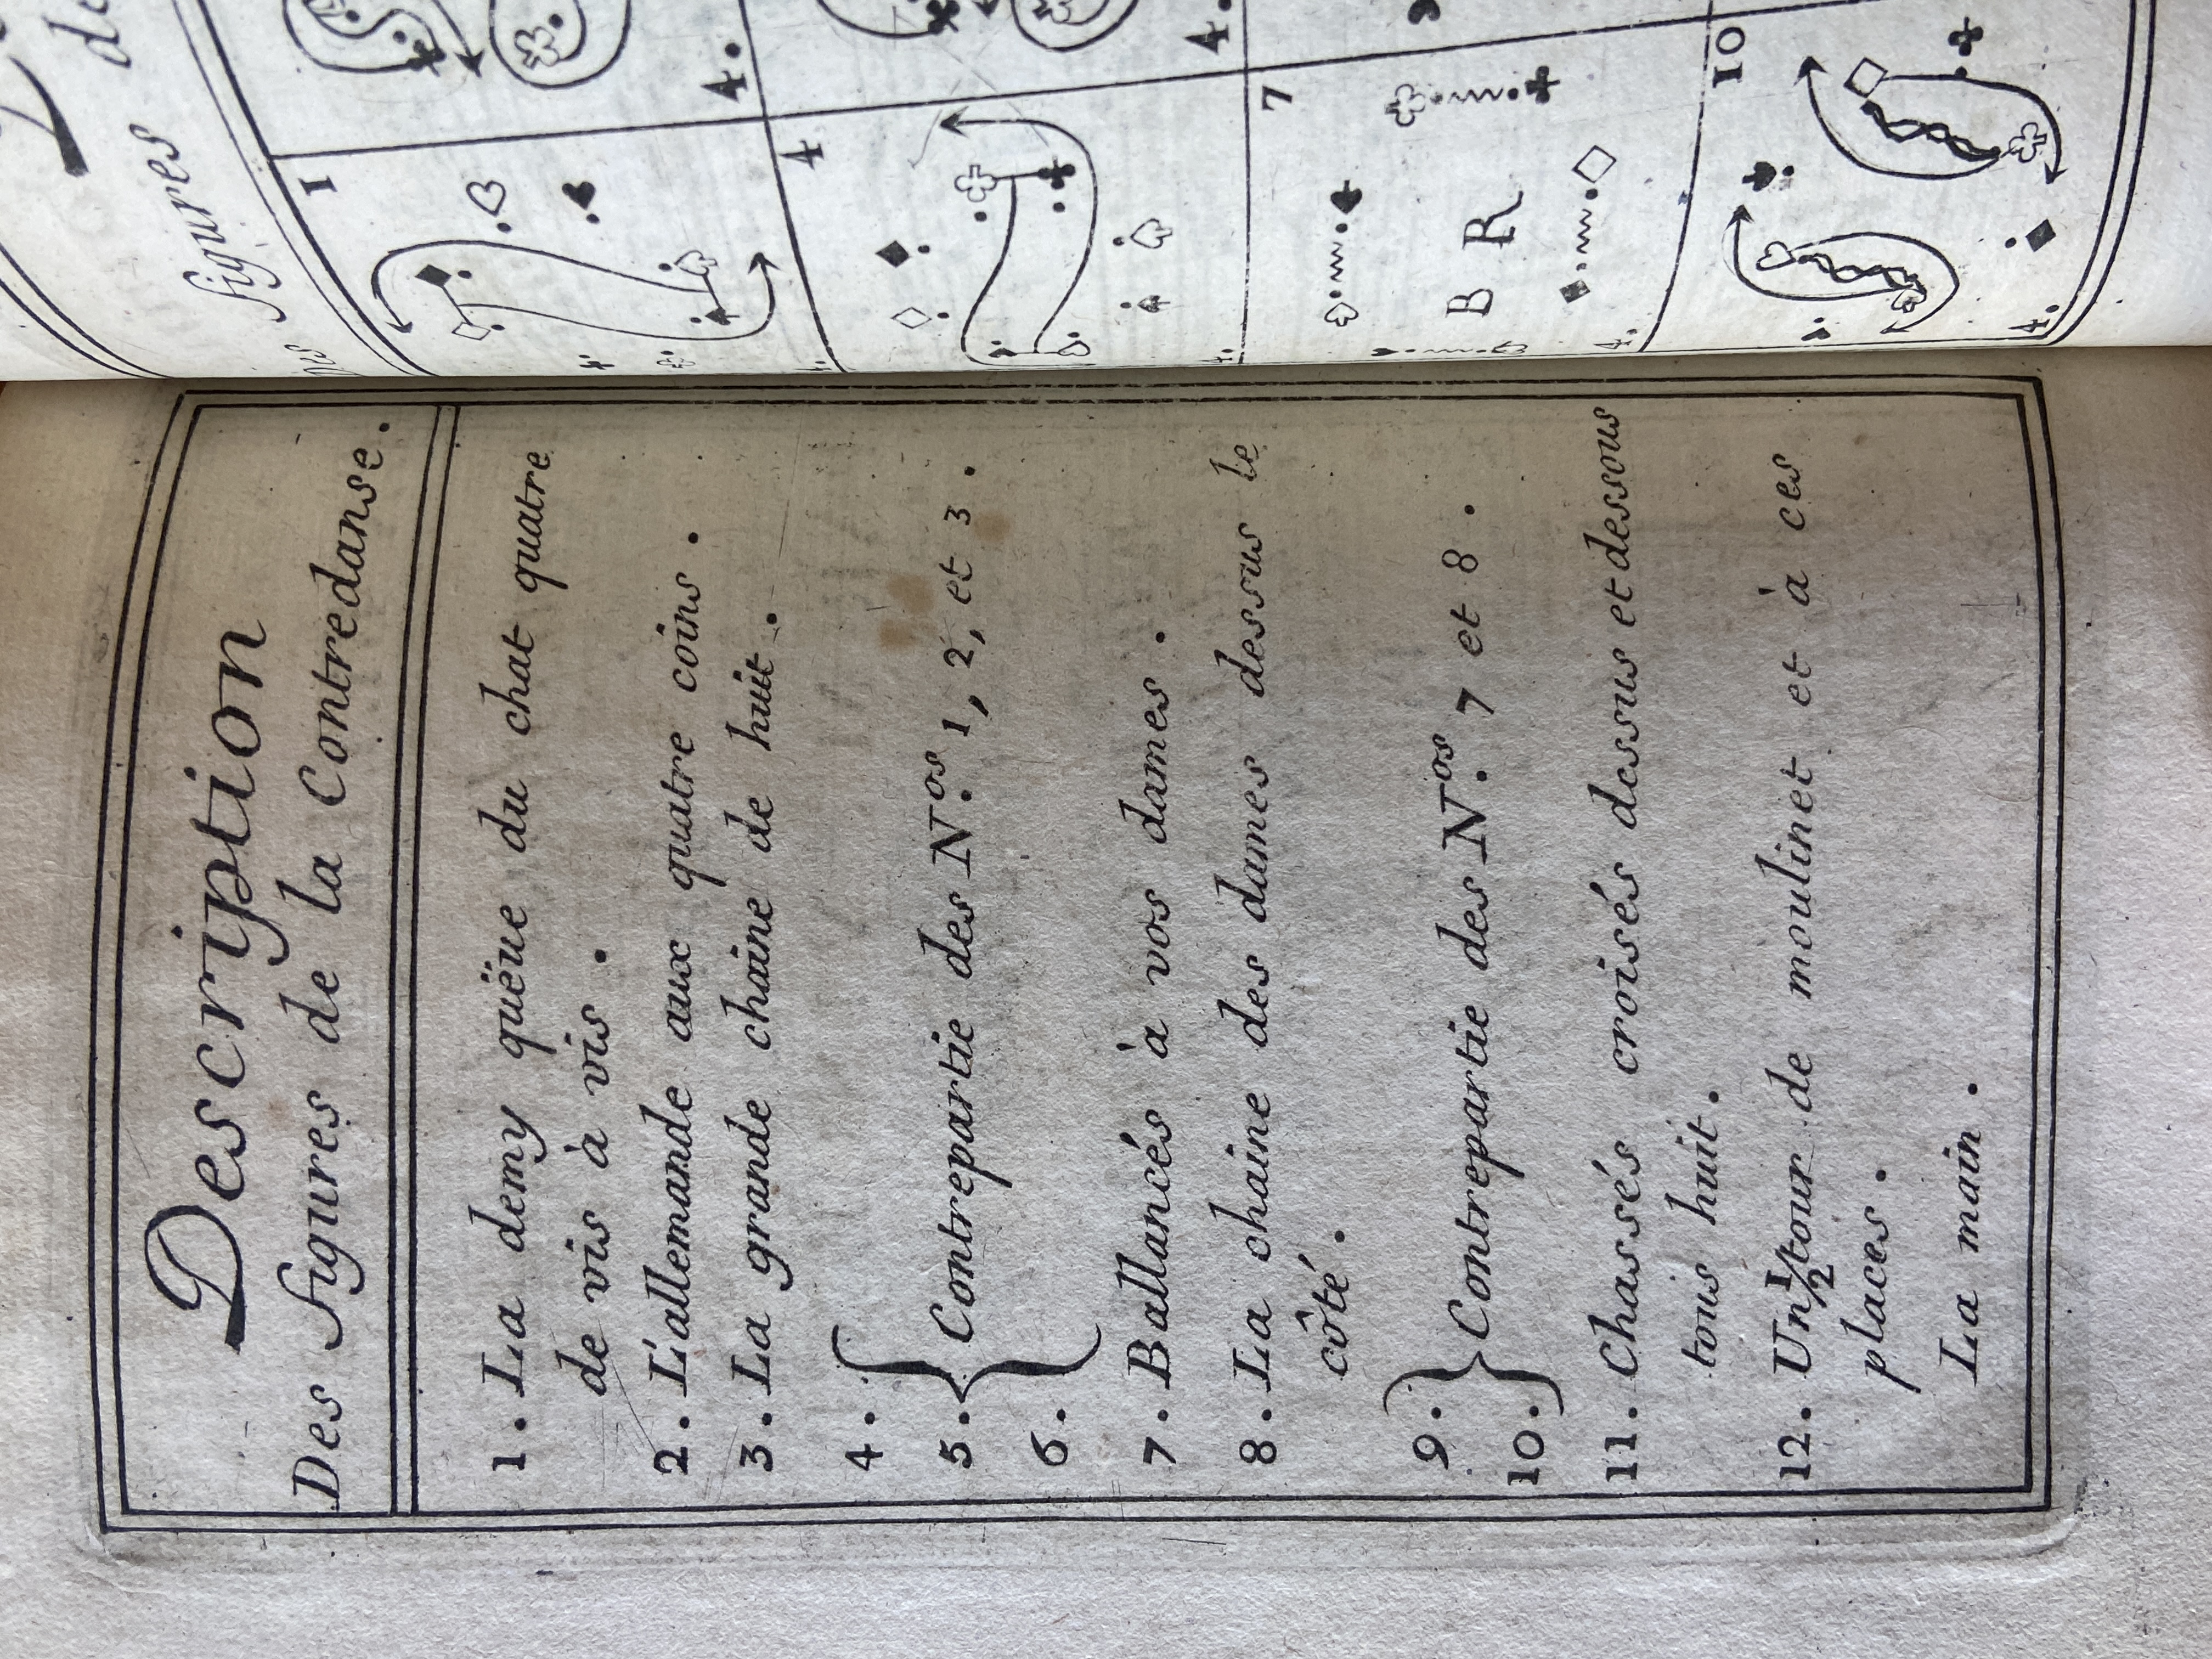 Description
Des figures de la Contredanse.
1. La demy queüe du chat quatre
de vis à vis.
2. L'allemande aux quatre coins.
3. La grande chaine de huit.
4.
5. Contrepartie des N.os 1, 2, et 3.
6.
7. Ballancés à vos dames.
8. La chaine des dames dessus le
côté.
9.
10. Contrepartie des N.os 7 et 8.
11. Chassés croisés dessus et dessous
tous huit.
12. Un 1/2 tour de moulinet et à ces
places.
La main.
des figures
1
4.
4
4.
7
B R
4.
10
4.